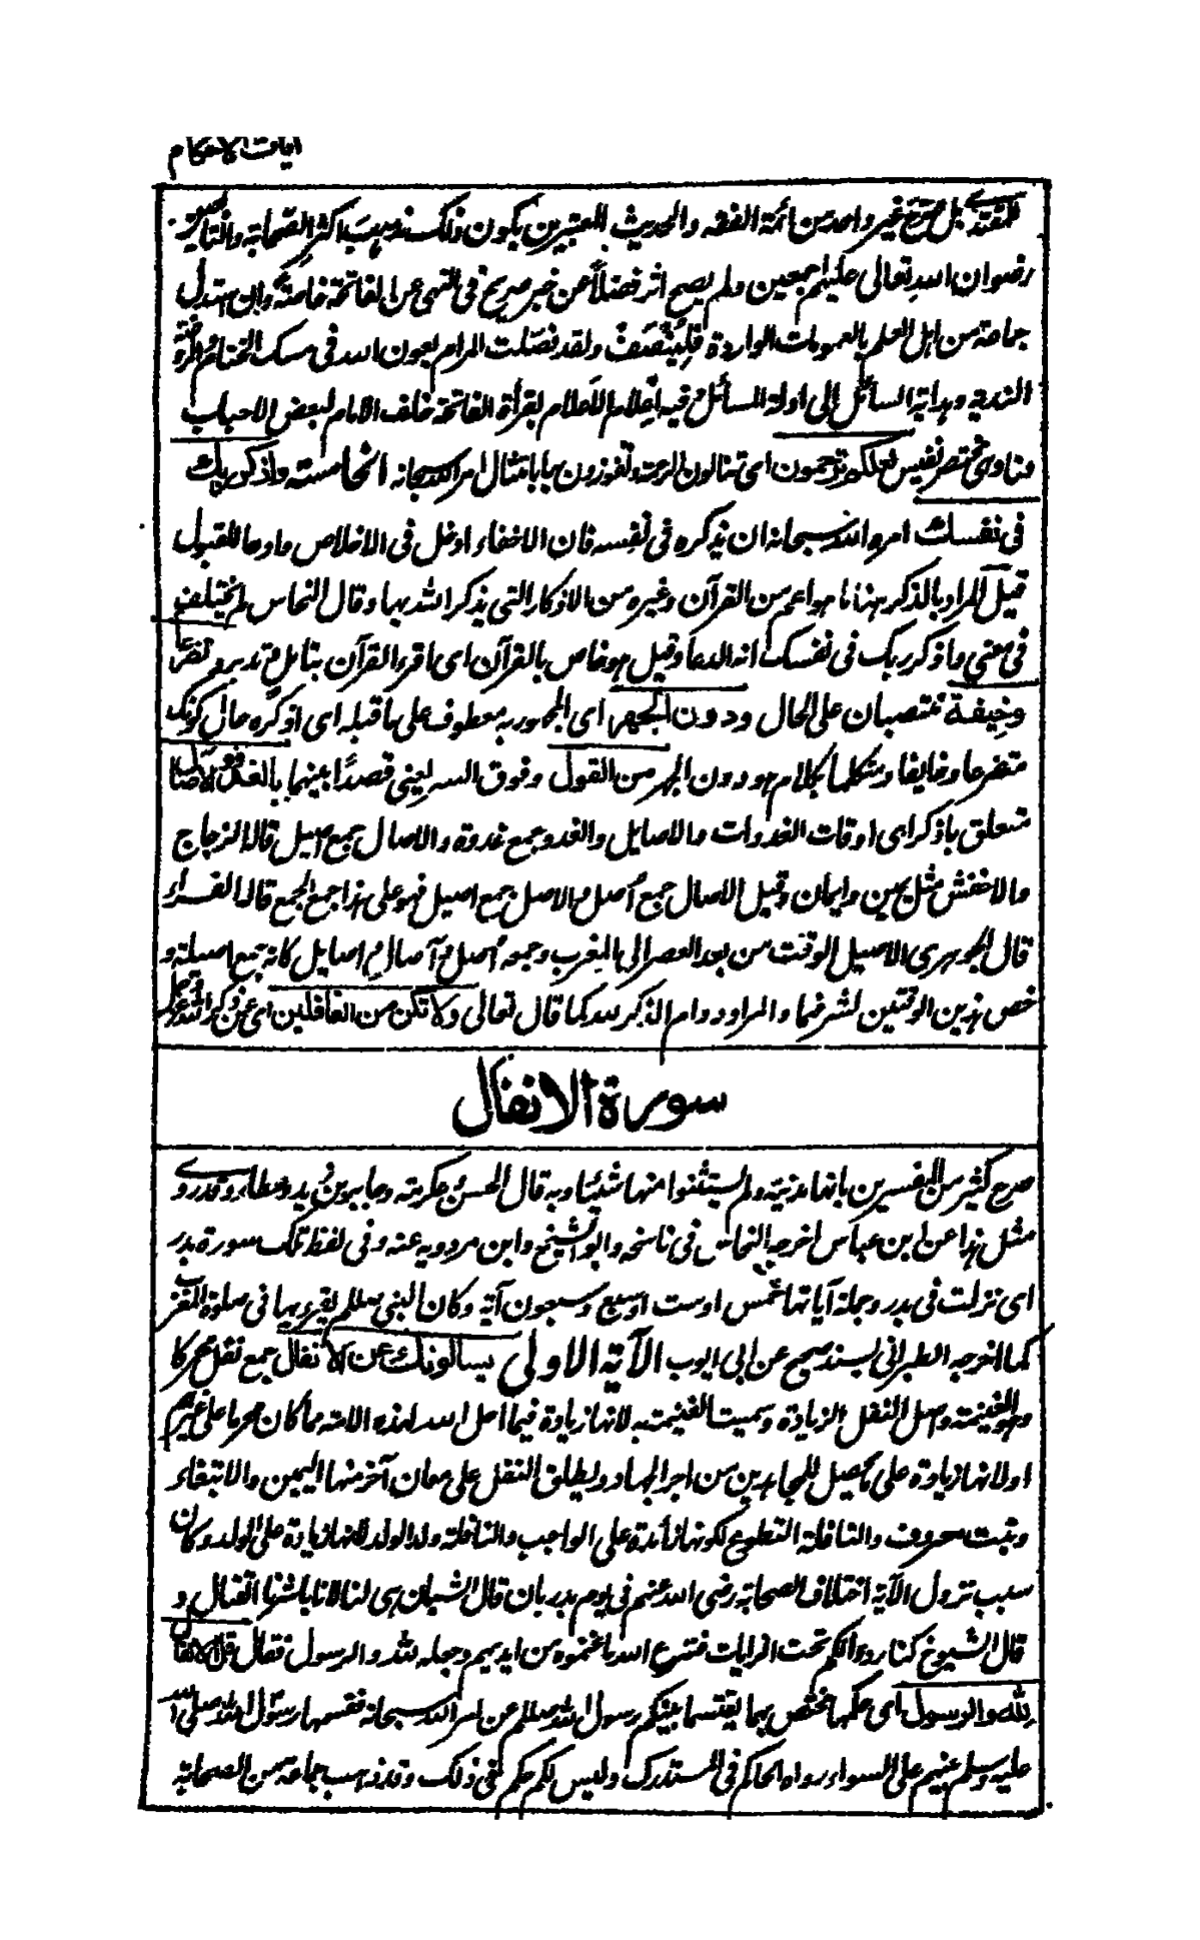 آيات الاحكام
للمقتدي بل صرح غير واحد من ائمة الفقه والحديث المعتبرين بكون ذلك مذهب اكثر الصحابة والتابعين
رضوان الله تعالى عليهم اجمعين ولم يصح اثر فضلاً عن خبر صريح في النهي عن الفاتحة خاصةً وان استدل
جماعة من اهل العلم بالعمومات الواردة فليُنْصَف ولقد فصّلت المرام بعون الله في مسك الختام والروضة
الندية وهداية السائل الى ادلة المسائل وفيه اعلام الاعلام بقرأة الفاتحة خلف الامام لبعض الاحباب
وفتاوى مختصر نفيس لعلكم ترحمون اى تنالون الرحمة وتفوزون بها بامتثال امر الله سبحانه الخامسة واذكر ربك
في نفسك امره الله سبحانه ان يذكره في نفسه فان الاخفاء ادخل في الاخلاص وادعى للقبول
قيل المراد بالذكر هنا ما هو اعم من القرآن وغيره من الاذكار التي يذكر الله بها وقال النحاس لم يختلف
في معنى واذكر ربك في نفسك انه الدعا وقيل هو خاص بالقرآن اى اقرء القرآن بتامل وتدبر تضرعا
وخيفة منتصبان على الحال ودون الجهر اى المجهور به معطوف على ما قبله اى اذكره حال كونك
متضرعا وخايفا ومتكلما بكلام هو دون الجهر من القول وفوق السر يعني قصدًا بينهما بالغدو والآصال
متعلق باذكر اى اوقات الغدوات والاصايل والغدو جمع غدوة والاصال جمع اصيل قاله الزجاج
والاخفش مثل يمين وايمان وقيل الاصال جمع أصل والاصل جمع اصيل فهو على هذا جمع الجمع قاله الفراء
قال الجوهري الاصيل الوقت من بعد العصر الى المغرب وجمعه أصل وآصال واصايل كانه جمع اصيلة و
خص هذين الوقتين لشرفهما والمراد دوام الذكر لله كما قال تعالى ولا تكن من الغافلين اى عن ذكر الله عز وجل
سورة الانفال
صرح كثير من المفسرين بانها مدنية ولم يستثنوا منها شيئا وبه قال الحسن وعكرمة وجابر بن زيد وعطاء وقد روى
مثل هذا عن ابن عباس اخرجه النحاس في ناسخه وابو الشيخ وابن مردويه عنه وفي لفظ تلك سورة بدر
اى نزلت في بدر وجملة آياتها خمس او ست او سبع وسبعون آية وكان النبي صلعم يقرء بها في صلوة المغرب
كما اخرجه الطبراني بسند صحيح عن ابي ايوب الآية الاولى يسالونك عن الانفال جمع نفل محركا
وهو الغنيمة واصل النفل الزيادة وسميت الغنيمة به لانها زيادة فيما احل الله لهذه الامة مما كان محرما على غيرهم
او لانها زيادة على ما يحصل للمجاهدين من اجر الجهاد ويطلق النفل على معان آخر منها اليمين والابتغاء
ونبت معروف والنافلة التطوع لكونها زائدة على الواجب والنافلة ولد الولد لانها زيادة على الولد وكان
سبب نزول الآية اختلاف الصحابة رضى الله عنهم في يوم بدر بان قال الشبان هي لنا لانا باشرنا القتال و
قال الشيوخ كنا ردءا لكم تحت الرايات فنزع الله ما غنموه من ايديهم وجعله لله والرسول فقال قل الانفال
لله والرسول اى حكمها مختص بهما يقتسمها بينكم رسول الله صلعم عن امر الله سبحانه فقسمها رسول الله صلى الله
عليه وسلم بينهم على السواء رواه الحاكم في المستدرك وليس لكم حكم في ذلك وقد ذهب جماعة من الصحابة